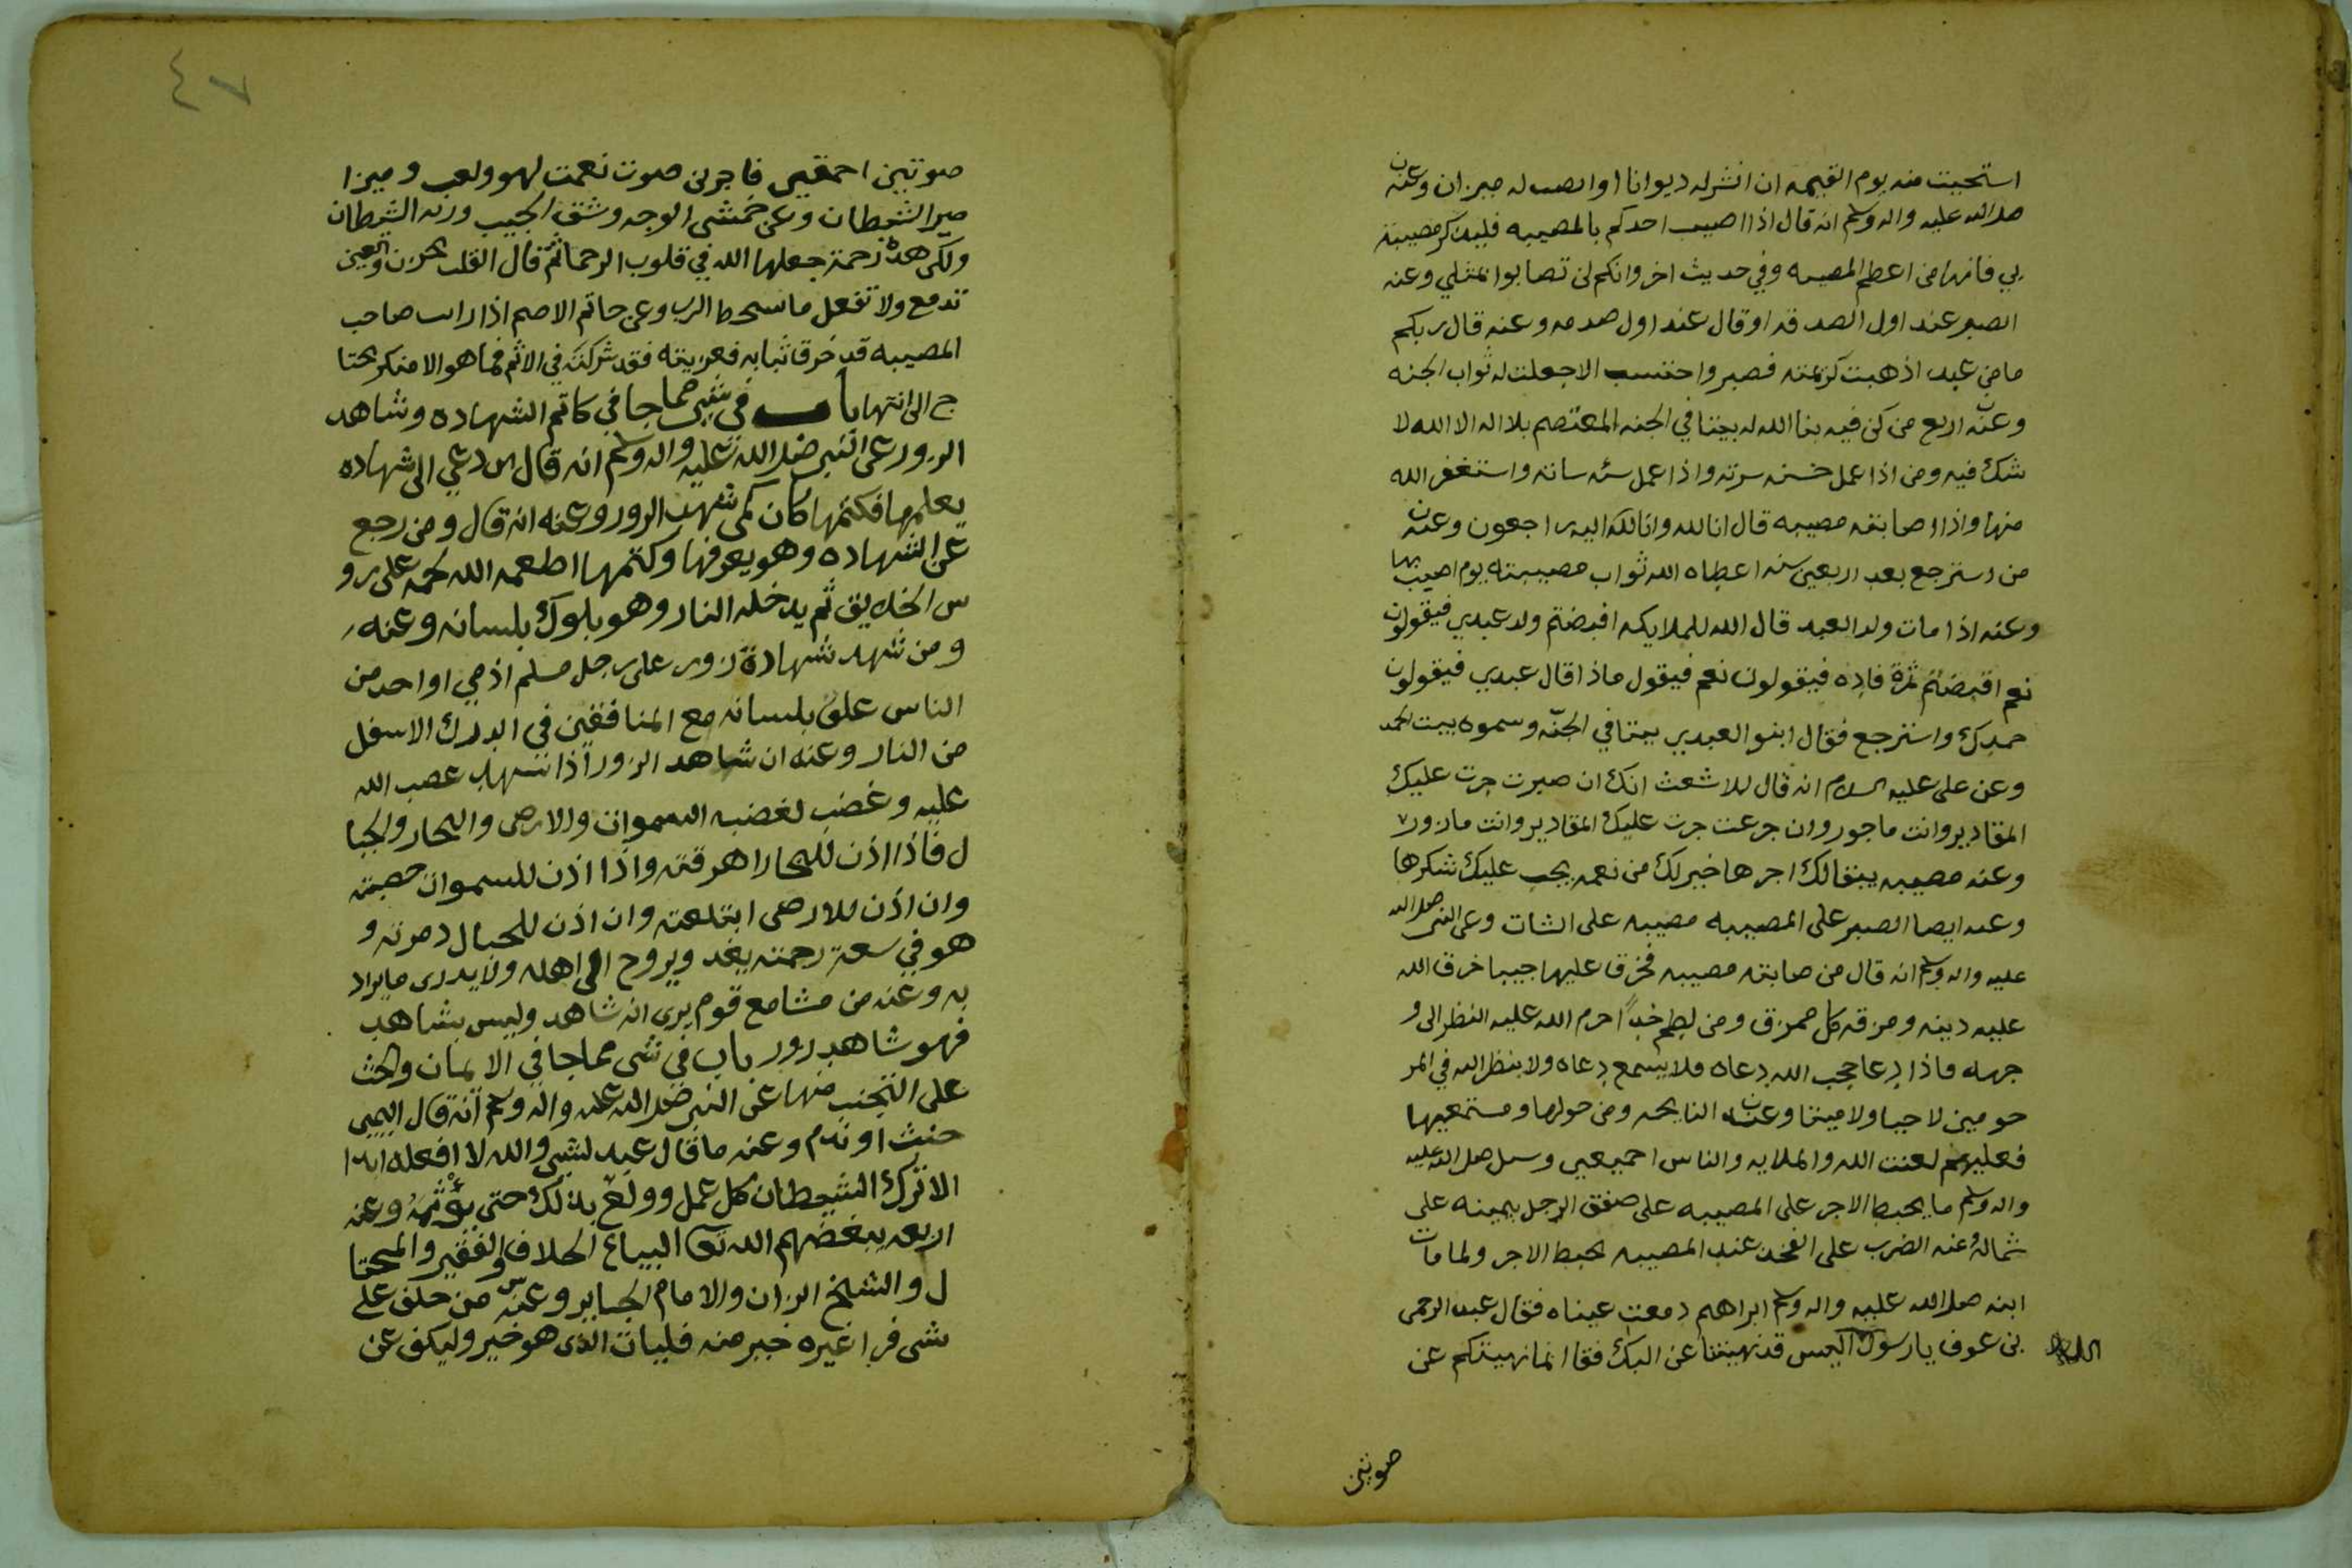 استحييت منه يوم القيمه ان انشر له ديوانا او انصب له ميزان وعنه
صلى الله عليه واله وسلم انه قال اذا اصيب احدكم بالمصيبه فليذكر مصيبته
بي فانها من اعظم المصيبه وفي حديث اخر وانكم لن تصابوا بمثلي وعنه
الصبر عند اول الصدقه او قال عند اول صدمه وعنه قال ربكم
ما من عبد اذهبت كريمته فصبر واحتسب الا جعلت له ثواب الجنه
وعنه اربع من كن فيه بنا الله له بيتا في الجنه المعتصم بلا اله الا الله لا
شك فيه ومن اذا عمل حسنه سرته واذا عمل سئه ساته واستغفر الله
منها واذا اصابته مصيبه قال انا لله وانا لله اليه راجعون وعنه
من استرجع بعد اربعين سنه اعطاه الله ثواب مصيبته يوم اصيب بها
وعنه اذا مات ولد العبد قال الله للملايكه اقبضتم ولد عبدي فيقولون
نعم اقبضتم ثمرة فاده فيقولون نعم فيقول ماذا قال عبدي فيقولون
حمدك واسترجع فقال ابنو العبدي بيتا في الجنّه وسموه بيت الحمد
وعن على عليه السلام انه قال للاشعث انك ان صبرت جرت عليك
المقادير وانت ماجور وان جزعت جرت عليك المقادير وانت مازور
وعنه مصيبه يبقالك اجرها خير لك من نعمه يجب عليك شكرها
وعنه ايضا الصبر على المصيبه مصيبه على الشات وعن النبي صلى الله
عليه واله وسلم انه قال من صابته مصيبه فخرق عليها جيبا خرق الله
عليه دينه ومزقه كل ممزق ومن لطم خداً حرم الله عليه النظر الى و
جهه فاذا دعا حجب الله دعاه فلا يسمع دعاه ولا ينظر الله في المر
حومين لا حيا ولا ميتا وعنه النايحه ومن حولها ومستمعيها
فعليهم لعنت الله والملايه والناس اجمعين وسل صلى الله عليه
واله وسلم ما يحبط الاجر على المصيبه على صفق الرجل يمينه على
شماله وعنه الضرب على الفخذ عند المصيبه يحبط الاجر ولما مات
ابنه صلى الله عليه واله وسلم ابراهم دمعت عيناه فقال عبد الرحمن
بن عوف يا رسول اليس قد نهيتنا عن البك فقا انما نهيتكم عن
صوتين
٤٧
صوتين احمقين فاجرين صوت نعمت لهو ولعب وميزا
مير الشيطان وعن خمش الوجه وشق الجيب ورنه الشيطان
ولكن هذه رحمة جعلها الله في قلوب الرحما ثم قال القلب يحزن والعين
تدمع ولا تفعل ما سحط الرب وعن حاتم الاصم اذا راست صاحب
المصيبه قد خرق ثيابه فعزيته فقد شركته في الاثم فما هو الا منكر يحتا
ج الى انتها باب في شي مما جا في كاتم الشهاده وشاهد
الزور عن النبي صلى الله عليه واله وسلم انه قال من دعي الى شهاده
يعلمها فكتمها كان كمن شهد الزور وعنه انه قال ومن رجع
عن الشهاده وهو يعرفها وكتمها اطعمه الله لحمه على رو
س الخلايق ثم يدخله النار وهو يلوك بلسانه وعنه
ومن شهد شهادة زور على رجل مسلم اذمي او احد من
الناس علق بلسانه مع المنافقين في الدرك الاسفل
من النار وعنه ان شاهد الزور اذا تشهد غضب الله
عليه وغضب لغضبه السموات والارض والبحار والجبا
ل فاذا اذن للبحار اهرقته واذا اذن للسموات حصبته
وان اذن للارض ابتلعته وان اذن للجبال دمرته و
هو في سعة رحمته يغد ويروح الى اهله ولا يدرى ما يراد
به وعنه من مشا مع قوم يرى انه شاهد وليس بشاهد
فهو شاهد زور باب في شى مما جا في الايمان والحث
على التجنب منها عن النبي صلى الله عليه واله وسلم انه قال اليمين
حنث او ندم وعنه ما قال عبد لشي والله لا افعله ابدا
الا ترك الشيطان كل عمل وولع بذلك حتى يؤثمه وعنه
اربعه يبغضهم الله تعا البياع الحلاف والفقير والمحتا
ل والشيخ الزان والامام الجاير وعنه من حلف على
شى فرا غيره خير منه فليات الذى هو خير وليكف عن